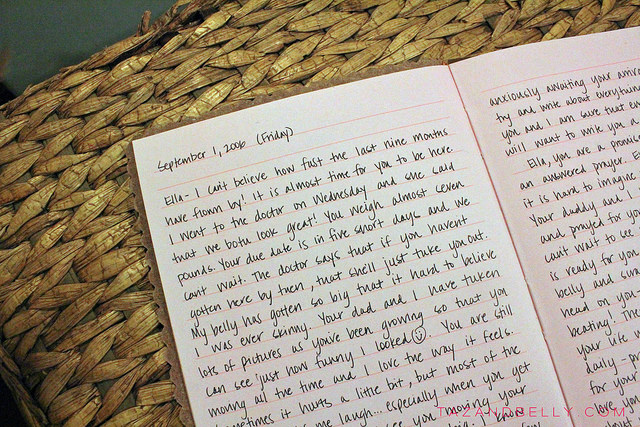 September 1, 2006 (Friday)
Ella- I can't believe how fast the last nine months
have flown by! It is almost time for you to be here.
I went to the doctor on Wednesday and she said
that we both look great! You weigh almost seven
pounds. Your due date is in five short days and we
can't wait. The doctor says that if you haven't
gotten here by then, that she'll just take you out.
My belly has gotten so big that it hard to believe
I was ever skinny. Your dad and I have taken
lots of pictures as you've been growing so that you
can see just how funny I looked ☺. You are still
moving all the time and I love the way it feels.
sometimes it hurts a little bit, but most of the
me laugh... especially when you get
see you moving your
anxiously awaiting your arriva
try and write about everything
you and I am sure that
will want to write you a
Ella, you are a promis
an answered prayer.
it is hard to imagine
Your daddy and I
and prayed for yo
can't wait to see
is ready for you
belly and
head on your
beating! The
your life
daily - p
for your
love you
TAZANDBELLY.COM